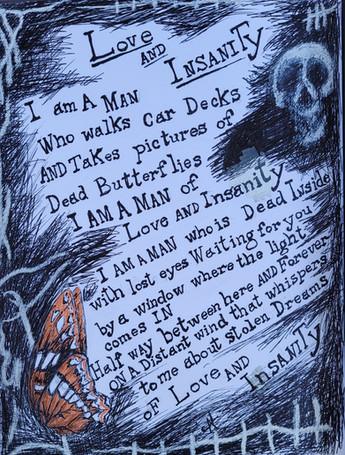 Love
AND
InsaniTy
I am A Man
Who walks Car Decks
AND Takes pictures of
Dead Butterflies
I AM A MAN of
Love AND Insanity
I AM A MAN who is Dead Inside
with lost eyes Waiting for you
by a window where the light
comes IN
Half way between here AND Forever
ON A Distant wind that whispers
to me about stolen Dreams
of Love AND InsaniTy